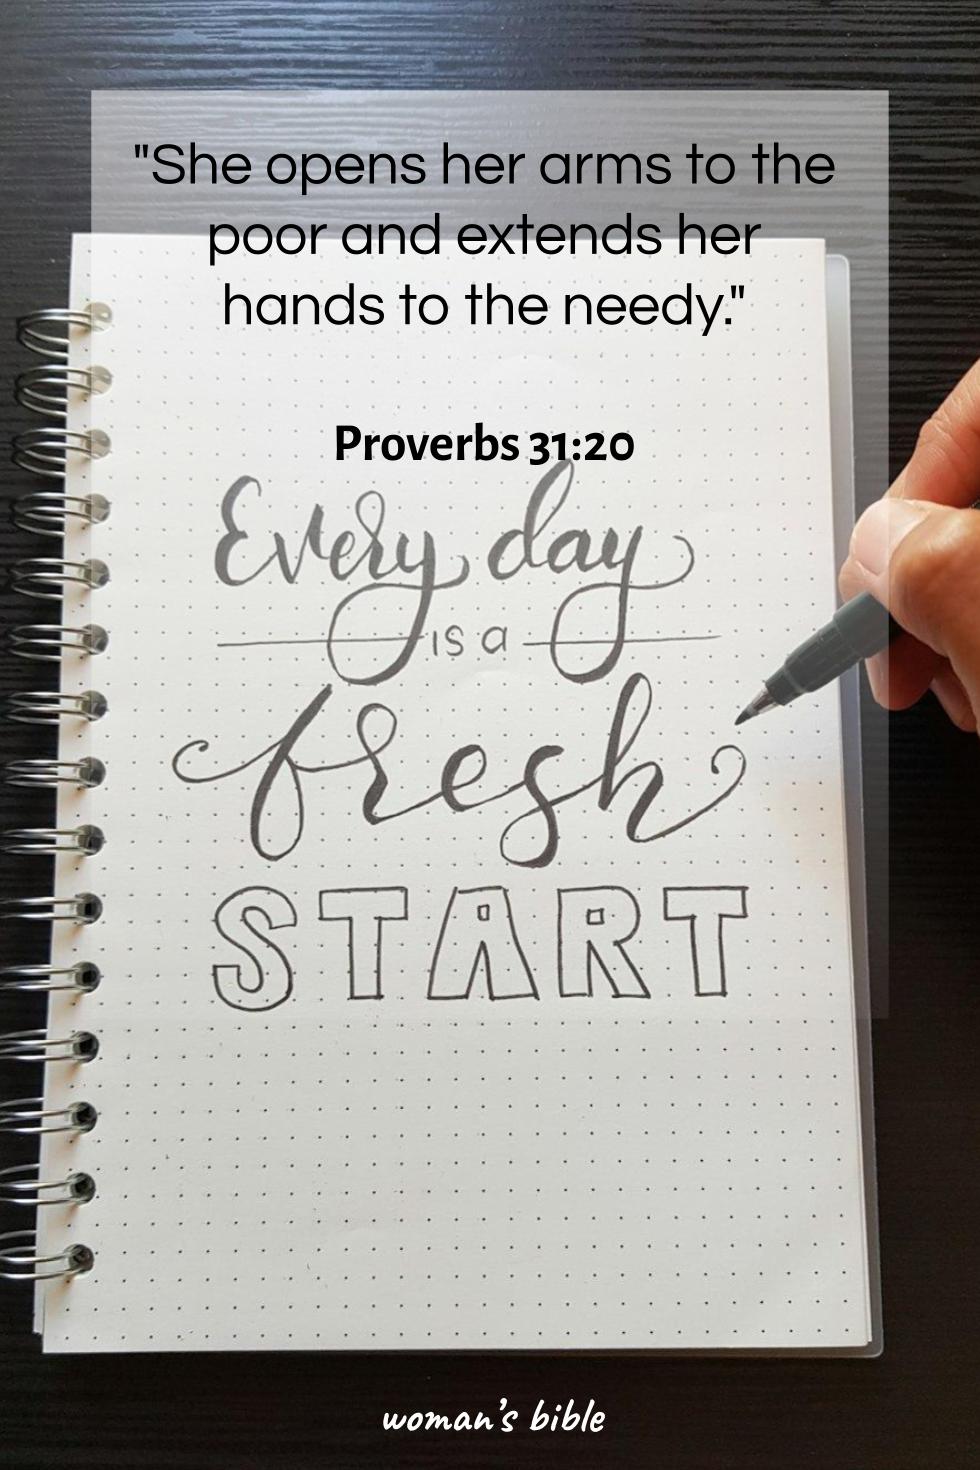 "She opens her arms to the
poor and extends her
hands to the needy."
Proverbs 31:20
Every day
is a
fresh
START
woman's bible